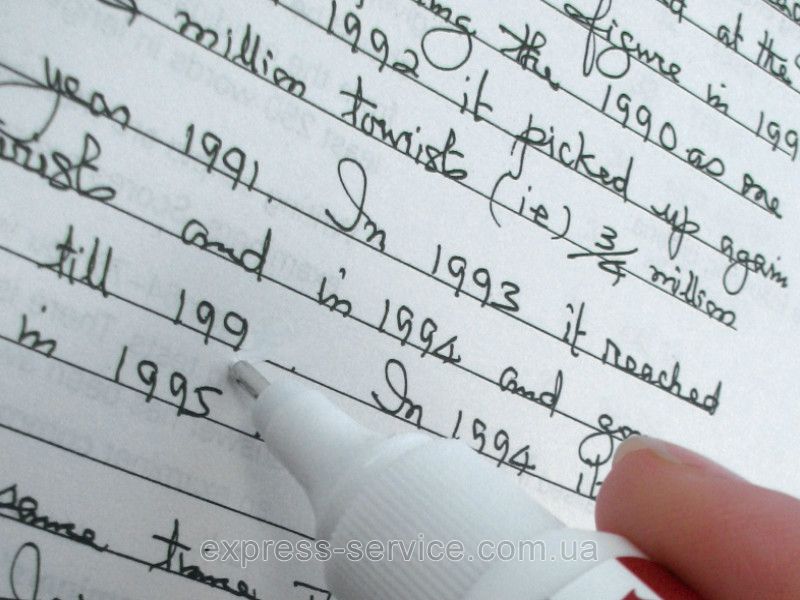 at the
figure in 199
the 1990 as one
1992 it picked up again
million tourists (ie) 3/4 million
year 1991. In 1993 it reached
and in 1994 and
till 199 . In 1994 it
in 1995
same time
express-service.com.ua